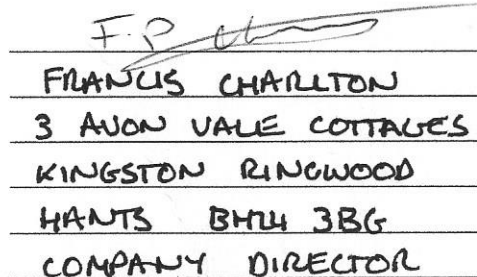 F.P.
FRANCIS CHARLTON
3 AVON VALE COTTAGES
KINGSTON RINGWOOD
HANTS BH24 3BG
COMPANY DIRECTOR